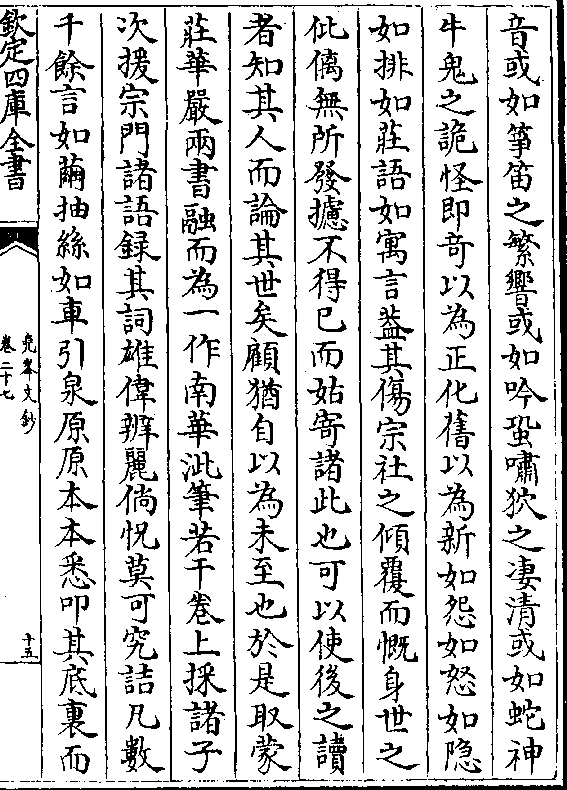 音或如箏笛之繁響或如吟蛩嘯狖之凄清或如蛇神
牛鬼之詭怪即竒以為正化舊以為新如怨如怒如隠
如排如莊語如寓言葢其傷宗社之傾覆而慨身世之
仳㒧無所發攄不得已而姑寄諸此也可以使後之讀
者知其人而論其世矣顧猶自以為未至也於是取蒙
莊華嚴兩書融而為一作南華泚筆若干卷上採諸子
次援宗門諸語録其詞雄偉辨麗倘怳莫可究詰凡數
千餘言如繭抽絲如車引泉原原本本悉叩其底裏而
欽定四庫全書
堯峯文鈔
卷二十七
十五